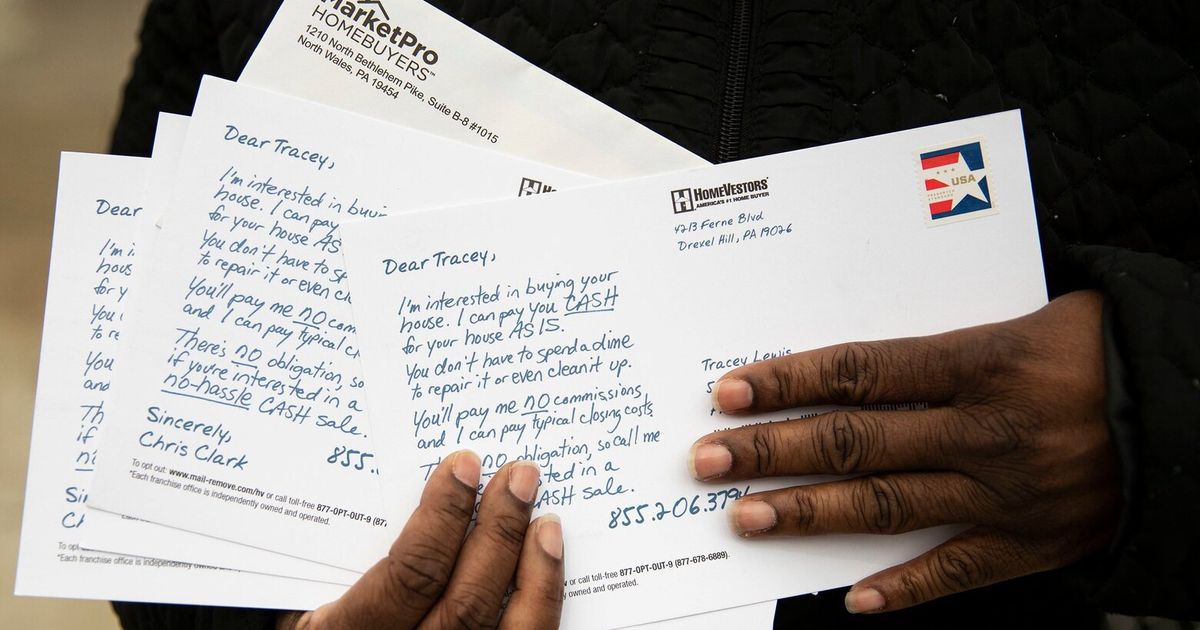 MarketPro
HOMEBUYERS™
1210 North Bethlehem Pike, Suite B-8 #1015
North Wales, PA 19454
Dear
I'm
hous
for y
You
to re
You
and
Th
if
Si
To opt
*Each franchise office is independently owned and operated.
Dear Tracey,
I'm interested in buyin
house. I can pay
for your house AS
You don't have to sp
to repair it or even cle
You'll pay me no com
and I can pay typical cl
There's no obligation, so
if you're interested in a
no-hassle CASH sale.
Sincerely,
Chris Clark
855.
To opt out: www.mail-remove.com/hv or call toll-free 877-OPT-OUT-9 (877
*Each franchise office is independently owned and operated.
HOMEVESTORS®
AMERICA'S #1 HOME BUYER
4213 Ferne Blvd
Drexel Hill, PA 19026
USA
PRESORTED
STANDARD
Dear Tracey,
I'm interested in buying your
house. I can pay you CASH
for your house AS IS.
You don't have to spend a dime
to repair it or even clean it up.
You'll pay me no commissions
and I can pay typical closing costs
no obligation, so call me
in a
CASH sale.
855.206.379
or call toll-free 877-OPT-OUT-9 (877-678-6889).
owned and operated.
Tracey Lewis
5